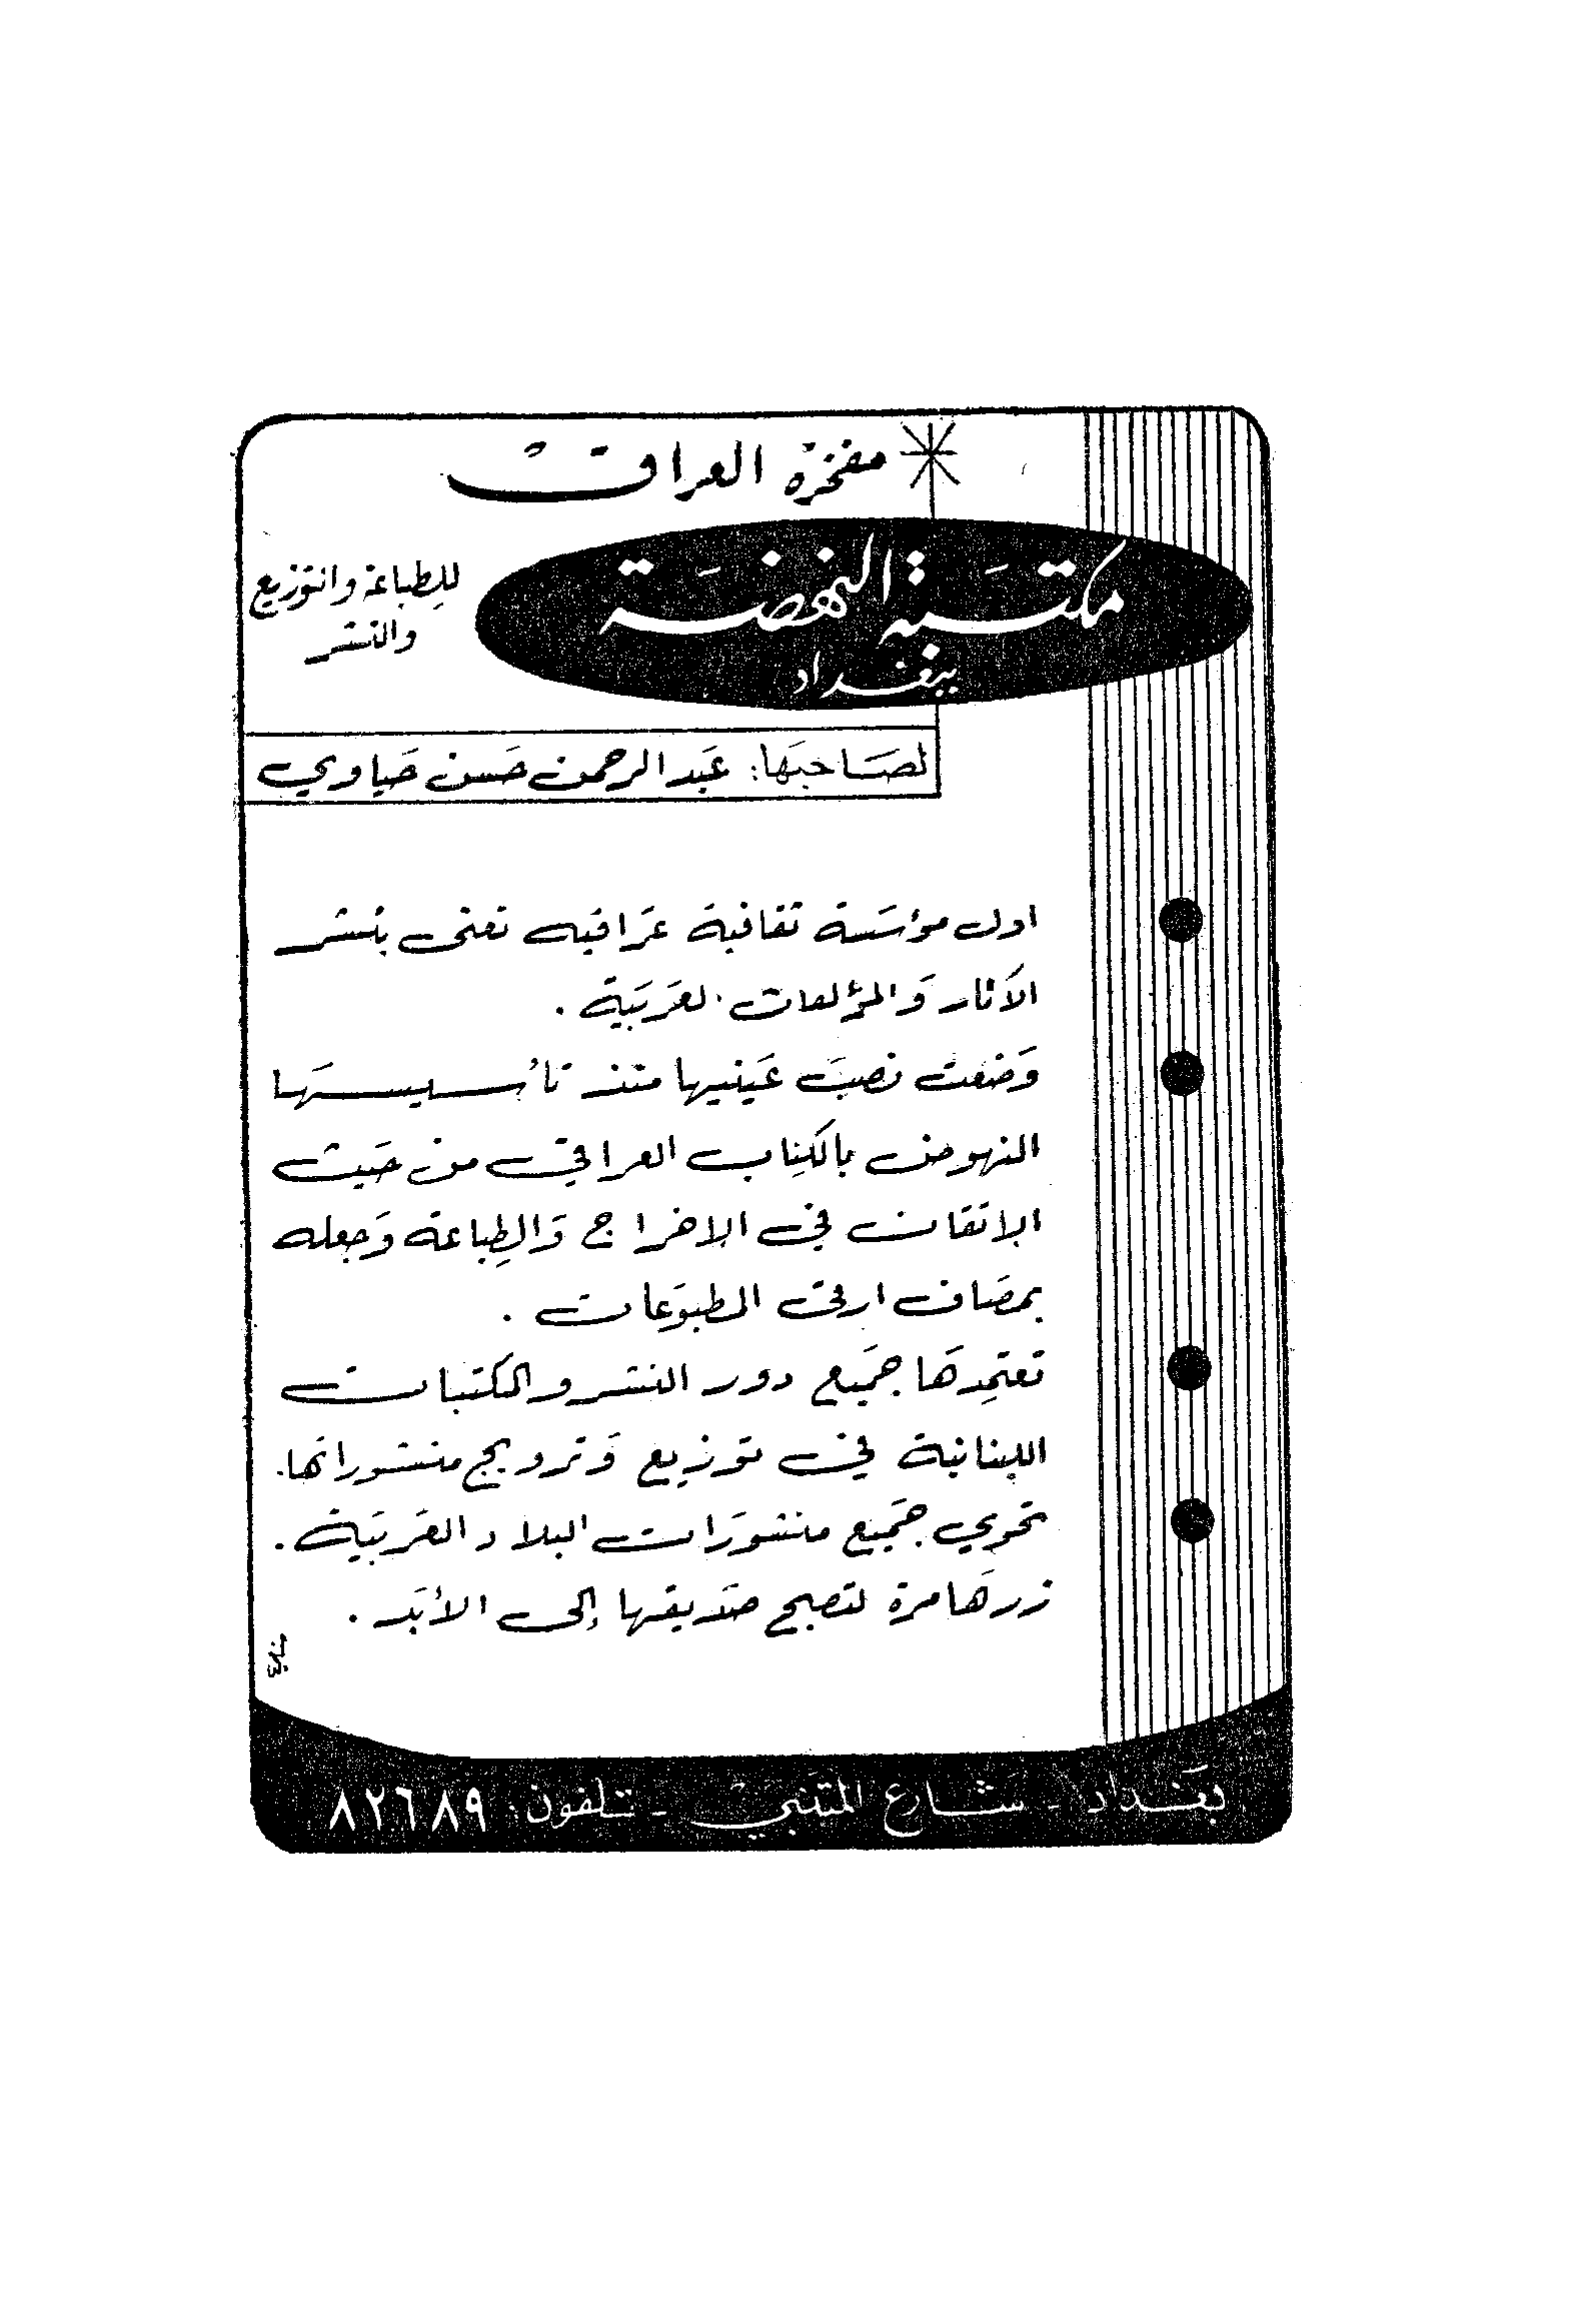 مفخرة العراق
مكتبة النهضة
ببغداد
للطباعة والتوزيع
والنشر
لصاحبها: عبد الرحمن حسن حياوي
اول مؤسسة ثقافية عراقية تعنى بنشر
الآثار والمؤلفات العربية .
وضعت نصب عينيها منذ تأسيسها
النهوض بالكتاب العراقي من حيث
الاتقان في الاخراج والطباعة وجعله
بمصاف ارقى المطبوعات .
تعتمدها جميع دور النشر والمكتبات
اللبنانية في توزيع وترويج منشوراتها.
تحوي جميع منشورات البلاد العربية .
زرها مرة لتصبح صديقها إلى الأبد .
بغداد - شارع المتنبي - تلفون: ٨٢٦٨٩